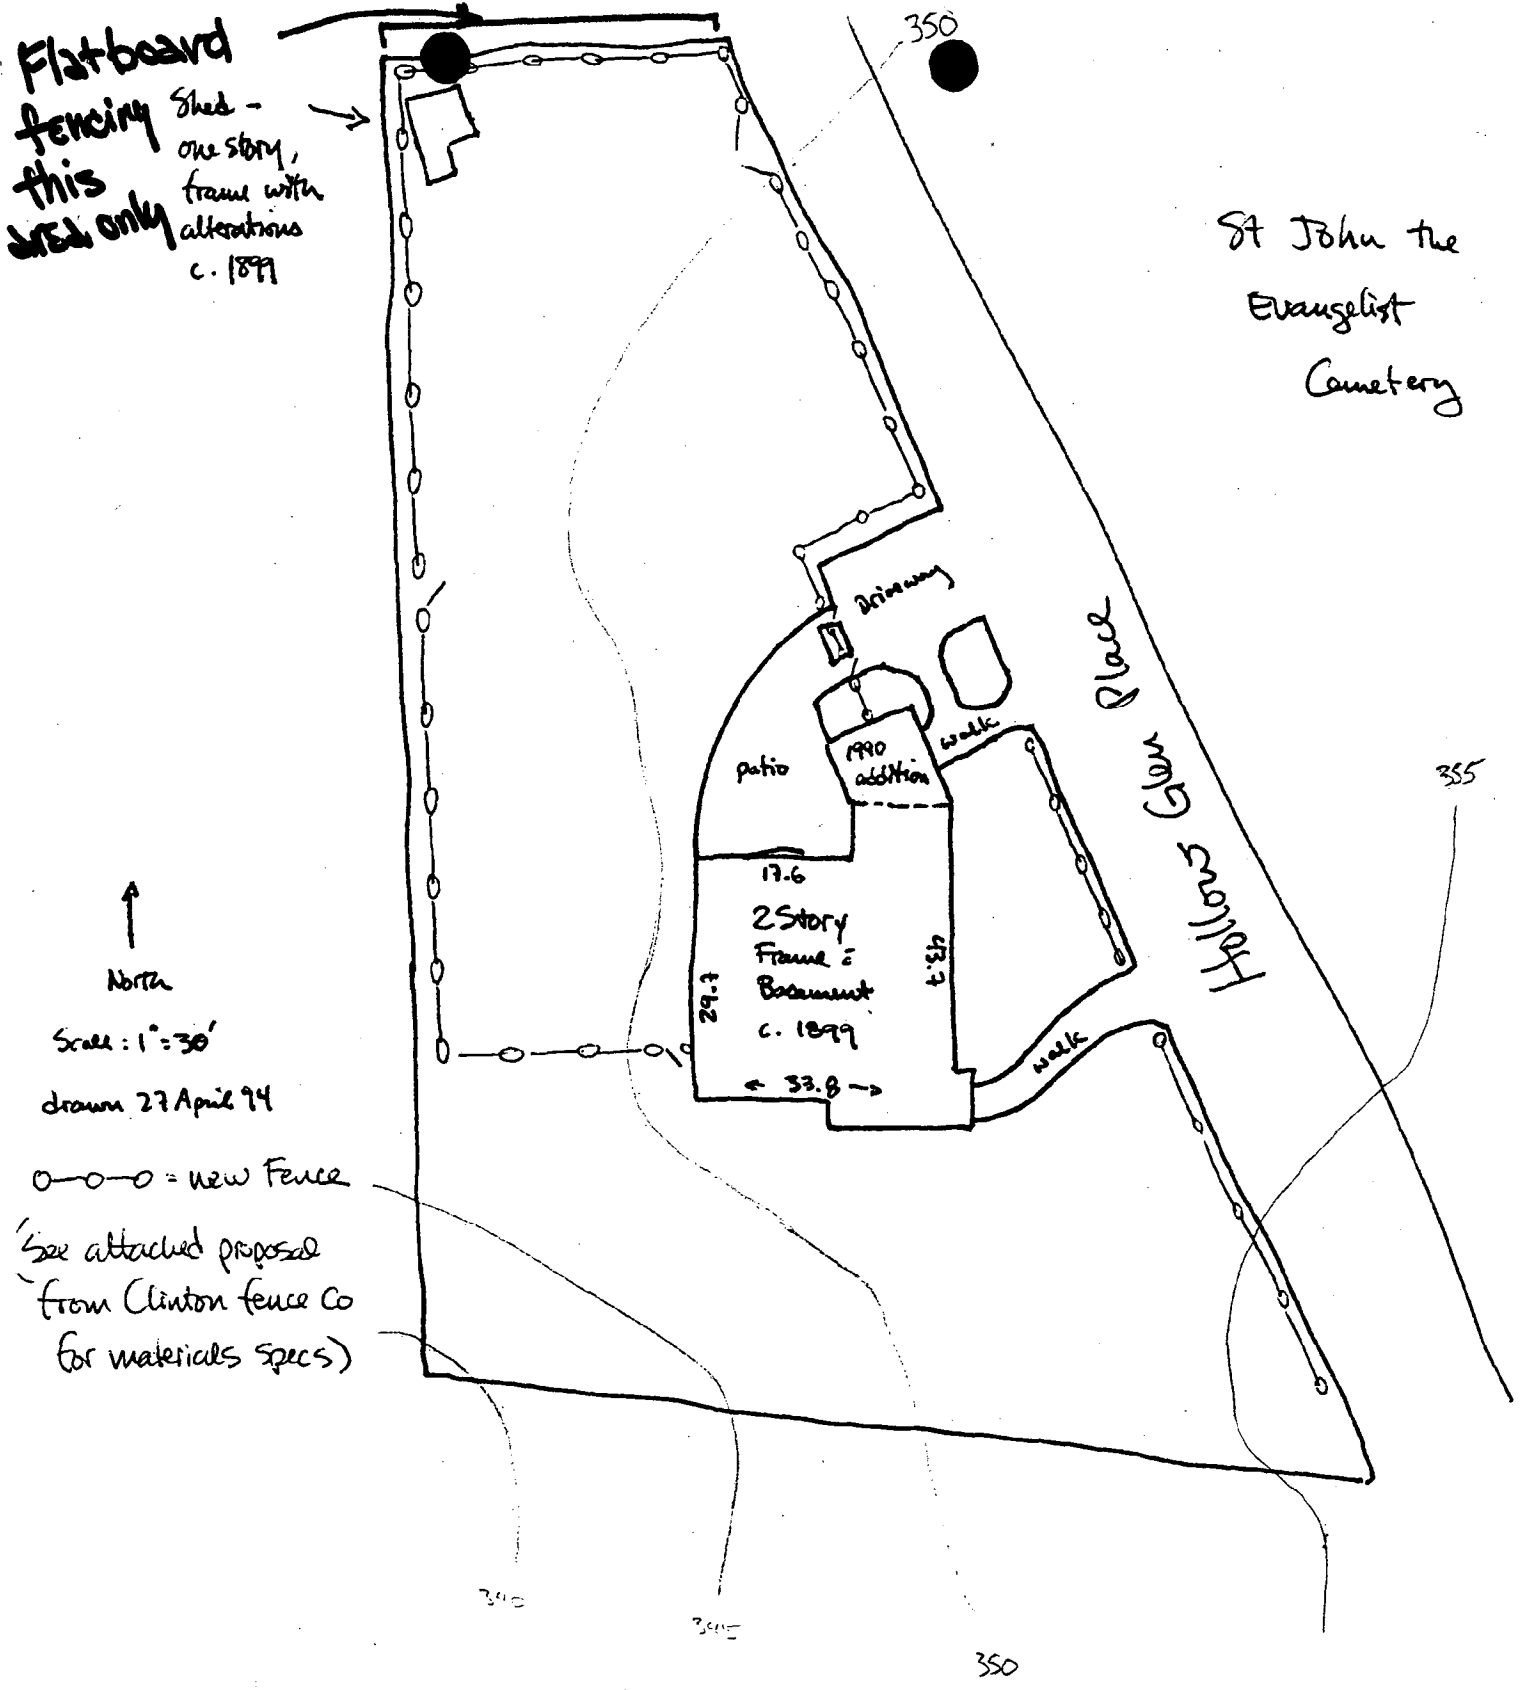 Flatboard
fencing
this
area only
Shed -
one story,
frame with
alterations
c. 1899
350
St John the
Evangelist
Cemetery
Driveway
Place
Glen
Hollows
walk
1990
addition
patio
355
17.6
2 Story
Frame =
Basement
c. 1899
29.7
43.7
← 33.8 →
walk
North
Scale: 1" = 30'
drawn 27 April 94
O—O—O = new Fence
See attached proposal
from Clinton fence Co
for materials specs)
340
345
350